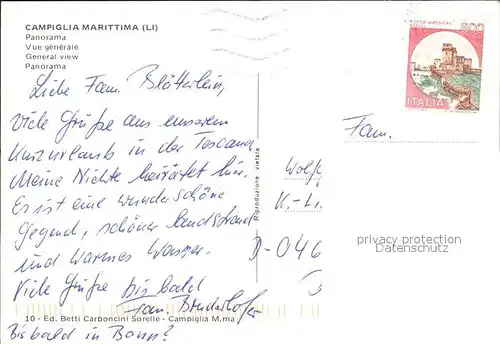 CAMPIGLIA MARITTIMA (LI)
Panorama
Vue générale
General view
Panorama
800
ITALIA
Liebe Fam. Blätterlein,
Viele Grüße aus unserem
Kurzurlaub in der Toscana.
Meine Nichte heiratet hier.
Es ist eine wunderschöne
Gegend, schöner Sandstrand
und warmes Wasser.
Viele Grüße bis bald
Fam.
Bis bald in Bonn?
Riproduzione vietata
Fam.
Wolfg
K.-Li
D-046
D
privacy protection
Datenschutz
10 - Ed. Betti Carboncini Sorelle - Campiglia M.ma